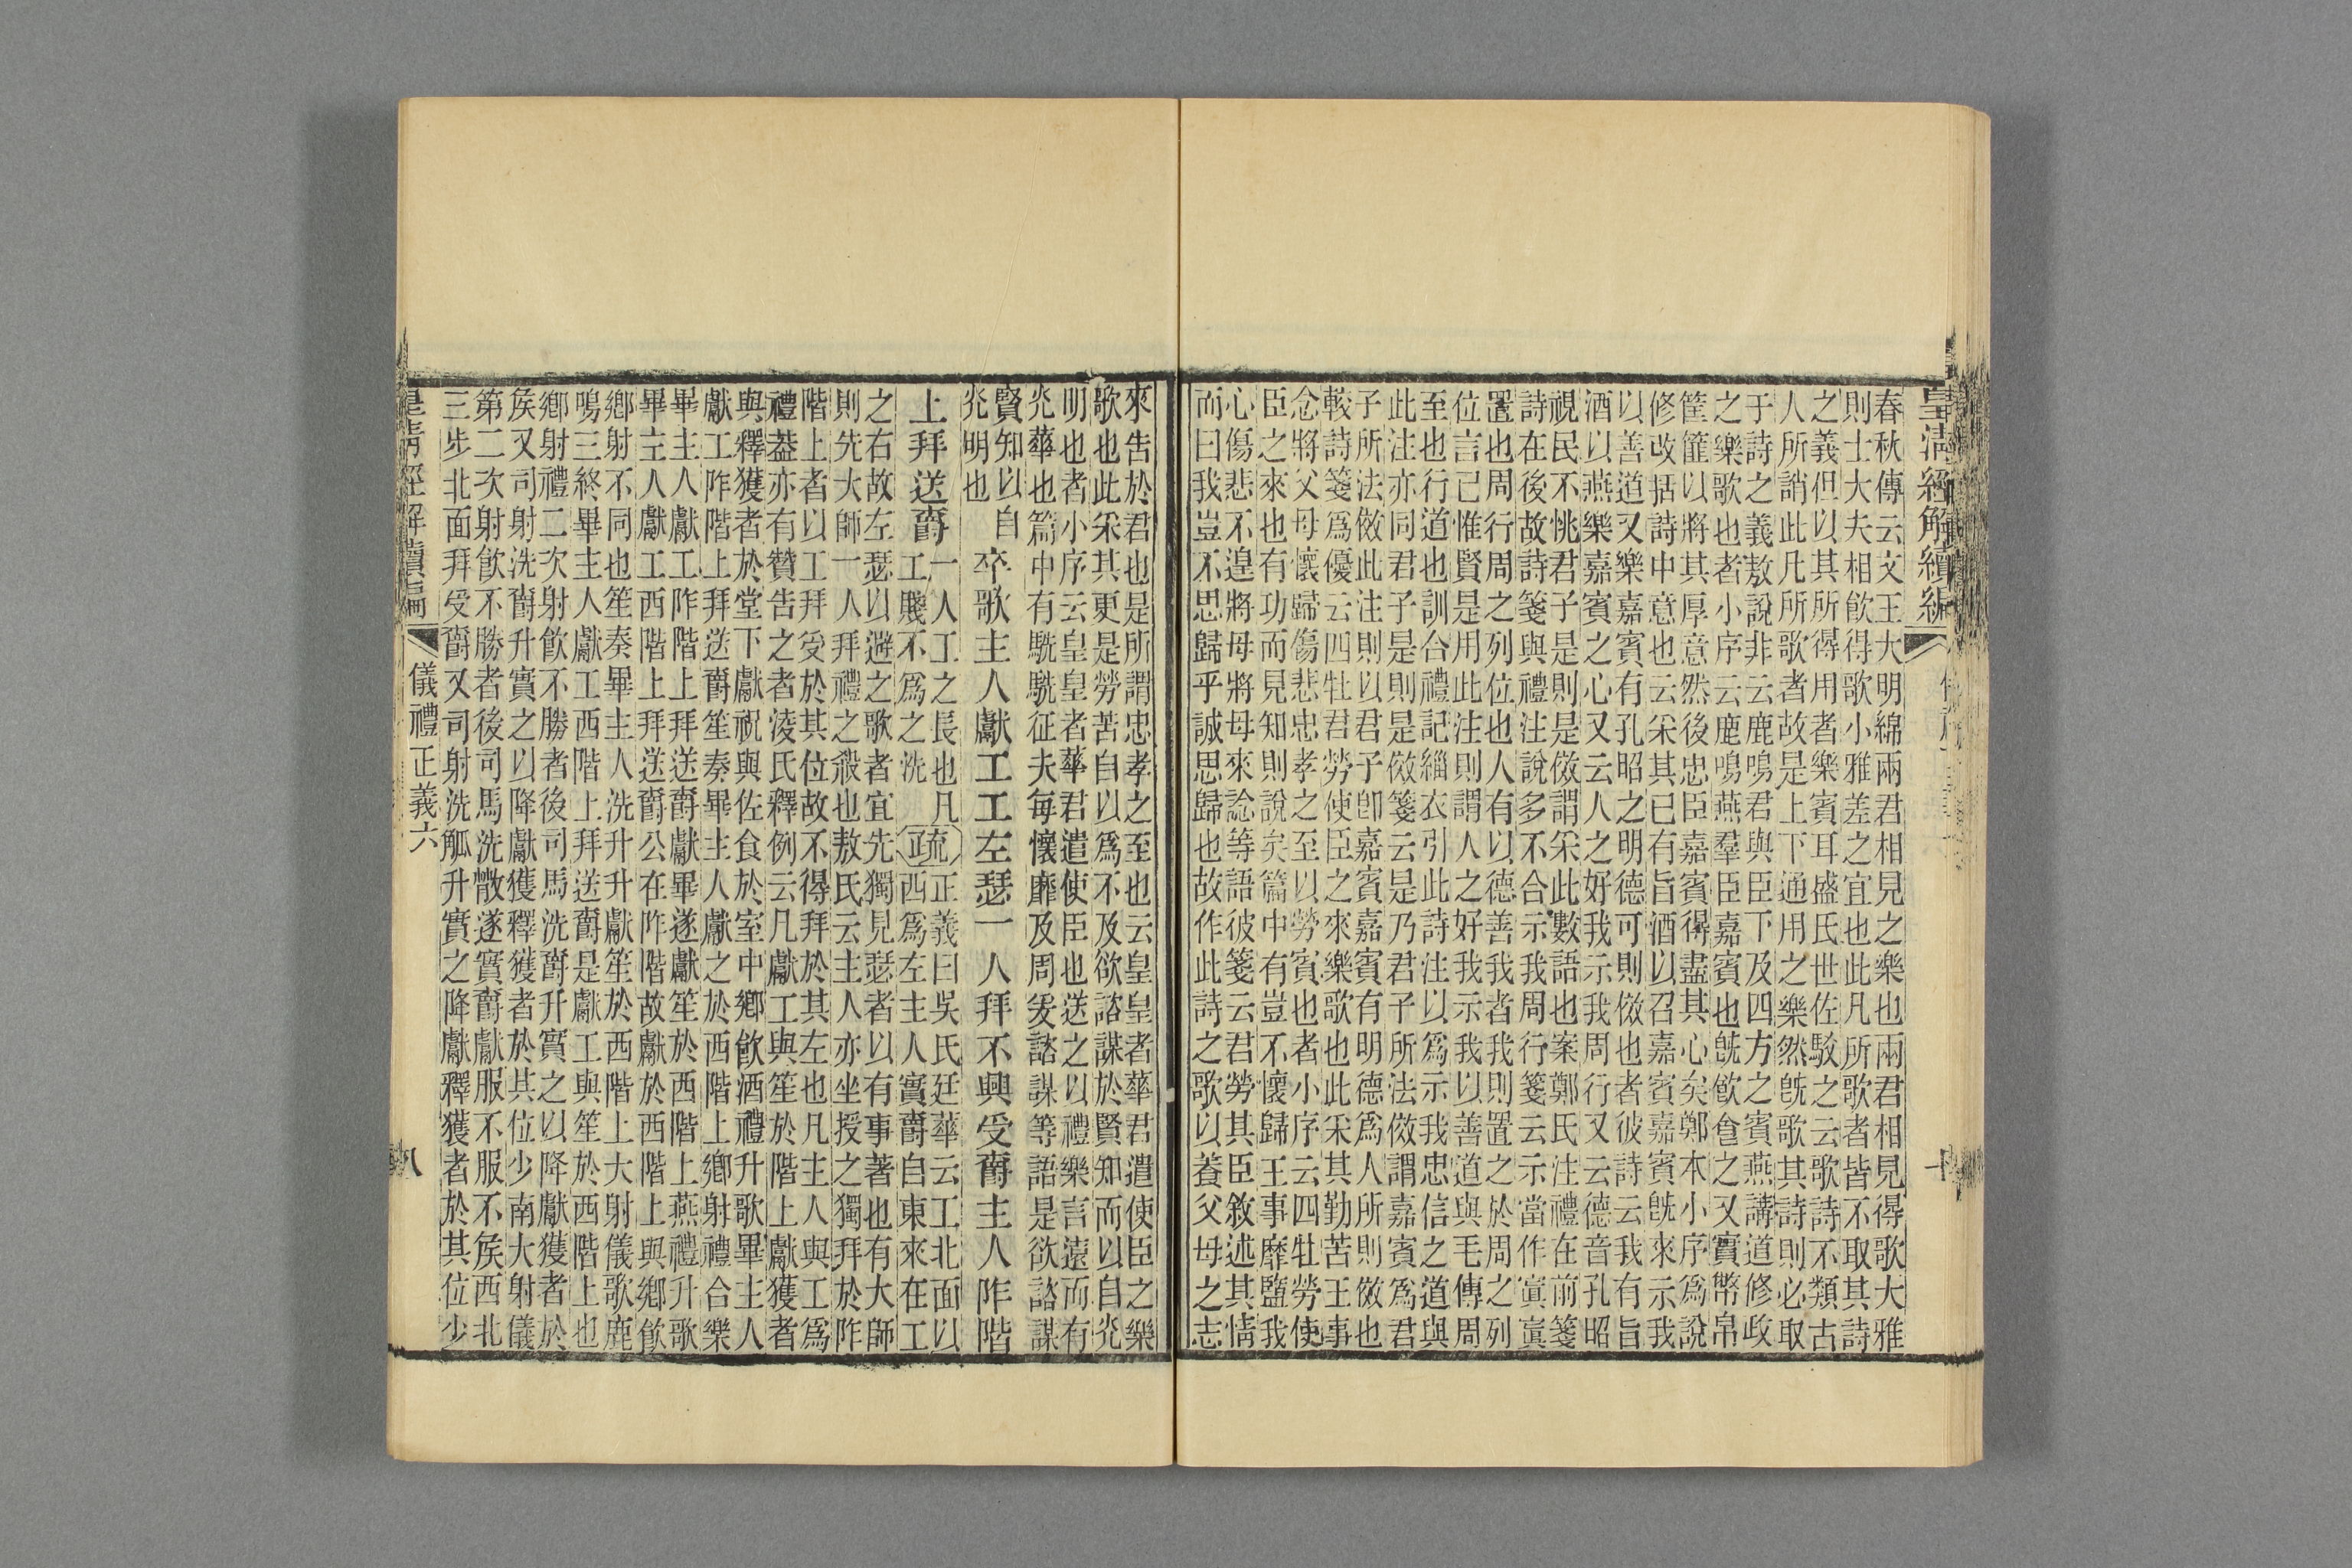 皇清經解續編
春秋傳云文王大明綿兩君相見之樂也兩君相見得歌大雅
則士大夫相飮得歌小雅差之宜也此凡所歌者皆不取其詩
之義但以其所得用者樂賓耳盛氏世佐駁之云歌詩不類古
人所誚此凡所歌者故是上下通用之樂然旣歌其詩則必取
于詩之義敖說非云鹿鳴君與臣下及四方之賓燕講道修政
之樂歌也者小序云鹿鳴燕羣臣嘉賓也旣飮食之又實幣帛
筐篚以將其厚意然後忠臣嘉賓得盡其心矣鄭本小序爲說
修改括詩中意也云采其已有旨酒以召嘉賓嘉賓旣來示我
以善道又樂嘉賓有孔昭之明德可則傚也者彼詩云我有旨
酒以燕樂嘉賓之心又云人之好我示我周行又云德音孔昭
視民不恌君子是則是傚謂采此數語也案鄭氏注禮在前箋
詩在後故詩箋與禮注說多不合示我周行箋云示當作寘寘
置也周行周之列位也人有以德善我者我則置之於周之列
位言己惟賢是用此注則謂人之好我示我以善道與毛傳周
至也行道也訓合禮記緇衣引此詩注以爲示我忠信之道與
此注亦同君子是則是傚箋云是乃君子所法傚謂嘉賓爲君
子所法傚此注則以君子卽嘉賓嘉賓有明德爲人所則傚也
較詩箋爲優云四牡君勞使臣之來樂歌也此采其勤苦王事
念將父母懷歸傷悲忠孝之至以勞賓也者小序云四牡勞使
臣之來也有功而見知則說矣篇中有豈不懷歸王事靡盬我
心傷悲不遑將母將母來諗等語彼箋云君勞其臣敘述其情
而曰我豈不思歸乎誠思歸也故作此詩之歌以養父母之志
來告於君也是所謂忠孝之至也云皇皇者華君遣使臣之樂
歌也此采其更是勞苦自以爲不及欲諮謀於賢知而以自光
明也者小序云皇皇者華君遣使臣也送之以禮樂言遠而有
光華也篇中有駪駪征夫每懷靡及周爰諮謀等語是欲諮謀
賢知以自
光明也
卒歌主人獻工工左瑟一人拜不興受爵主人阼階
上拜送爵
一人工之長也凡
工賤不爲之洗
疏
正義曰吳氏廷華云工北面以
西爲左主人實爵自東來在工
之右故左瑟以避之歌者宜先獨見瑟者以有事著也有大師
則先大師一人拜禮之殺也敖氏云主人亦坐授之獨拜於阼
階上者以工拜受於其位故不得拜於其左也凡主人與工爲
禮葢亦有贊告之者淩氏釋例云凡獻工與笙於階上獻獲者
與釋獲者於堂下獻祝與佐食於室中鄉飮酒禮升歌畢主人
獻工阼階上拜送爵笙奏畢主人獻之於西階上鄉射禮合樂
畢主人獻工阼階上拜送爵獻畢遂獻笙於西階上燕禮升歌
畢主人獻工西階上拜送爵公在阼階故獻於西階上與鄉飮
鄉射不同也笙奏畢主人洗升升獻笙於西階上大射儀歌鹿
鳴三終畢主人獻工西階上拜送爵是獻工與笙於西階上也
鄉射禮二次射飮不勝者後司馬洗爵升實之以降獻獲者於
矦又司射洗爵升實之以降獻獲釋獲者於其位少南大射儀
第二次射飮不勝者後司馬洗散遂實爵獻服不服不矦西北
三步北面拜受爵又司射洗觚升實之降獻釋獲者於其位少
皇清經解續編
儀禮正義六
八